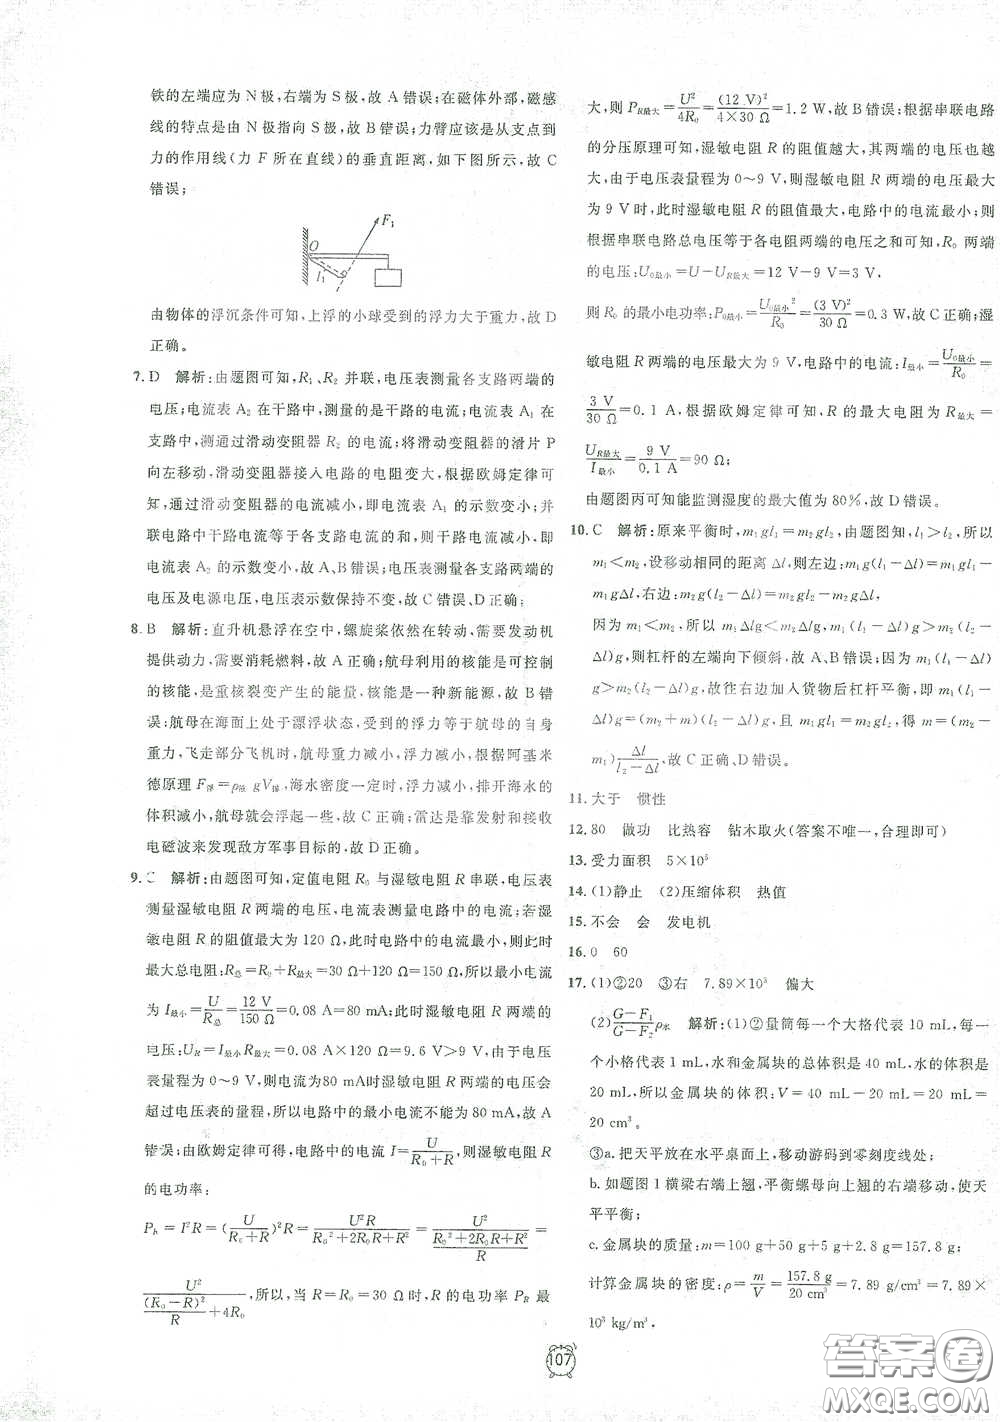 铁的左端应为 N 极,右端为 S 极,故 A 错误;在磁体外部,磁感
线的特点是由 N 极指向 S 极,故 B 错误;力臂应该是从支点到
力的作用线(力 F 所在直线)的垂直距离,如下图所示,故 C
错误;
F₁
O
l₁
由物体的浮沉条件可知,上浮的小球受到的浮力大于重力,故 D
正确。
7. D 解析:由题图可知,R₁、R₂ 并联,电压表测量各支路两端的
电压;电流表 A₂ 在干路中,测量的是干路的电流;电流表 A₁ 在
支路中,测通过滑动变阻器 R₂ 的电流;将滑动变阻器的滑片 P
向左移动,滑动变阻器接入电路的电阻变大,根据欧姆定律可
知,通过滑动变阻器的电流减小,即电流表 A₁ 的示数变小;并
联电路中干路电流等于各支路电流的和,则干路电流减小,即
电流表 A₂ 的示数变小,故 A、B 错误;电压表测量各支路两端的
电压及电源电压,电压表示数保持不变,故 C 错误、D 正确;
8. B 解析:直升机悬浮在空中,螺旋桨依然在转动,需要发动机
提供动力,需要消耗燃料,故 A 正确;航母利用的核能是可控制
的核能,是重核裂变产生的能量,核能是一种新能源,故 B 错
误;航母在海面上处于漂浮状态,受到的浮力等于航母的自身
重力,飞走部分飞机时,航母重力减小,浮力减小,根据阿基米
德原理 F浮=ρ液 gV排,海水密度一定时,浮力减小,排开海水的
体积减小,航母就会浮起一些,故 C 正确;雷达是靠发射和接收
电磁波来发现敌方军事目标的,故 D 正确。
9. C 解析:由题图可知,定值电阻 R₀ 与湿敏电阻 R 串联,电压表
测量湿敏电阻 R 两端的电压,电流表测量电路中的电流;若湿
敏电阻 R 的阻值最大为 120 Ω,此时电路中的电流最小,则此时
最大总电阻:R总=R₀+R最大=30 Ω+120 Ω=150 Ω,所以最小电流
为 I最小=U/R总=12 V/150 Ω=0.08 A=80 mA,此时湿敏电阻 R 两端的
电压:U_R=I最小R最大=0.08 A×120 Ω=9.6 V>9 V,由于电压
表量程为 0～9 V,则电流为80 mA时湿敏电阻 R 两端的电压会
超过电压表的量程,所以电路中的最小电流不能为 80 mA,故 A
错误;由欧姆定律可得,电路中的电流 I=U/(R₀+R),则湿敏电阻 R
的电功率:
P_R=I²R=(U/(R₀+R))²R=U²R/(R₀²+2R₀R+R²)=U²/((R₀²+2R₀R+R²)/R)=
U²/((R₀-R)²/R+4R₀),所以,当 R=R₀=30 Ω时,R 的电功率 P_R 最
大,则 P_R最大=U²/4R₀=(12 V)²/(4×30 Ω)=1.2 W,故 B 错误;根据串联电路
的分压原理可知,湿敏电阻 R 的阻值越大,其两端的电压也越
大,由于电压表量程为 0～9 V,则湿敏电阻 R 两端的电压最大
为 9 V时,此时湿敏电阻 R 的阻值最大,电路中的电流最小;则
根据串联电路总电压等于各电阻两端的电压之和可知,R₀ 两端
的电压:U₀最小=U-U_R最大=12 V-9 V=3 V,
则 R₀ 的最小电功率:P₀最小=U₀最小²/R₀=(3 V)²/30 Ω=0.3 W,故 C 正确;湿
敏电阻 R 两端的电压最大为 9 V,电路中的电流:I最小=U₀最小/R₀=
3 V/30 Ω=0.1 A,根据欧姆定律可知,R 的最大电阻为 R最大=
U_R最大/I最小=9 V/0.1 A=90 Ω;
由题图丙可知能监测湿度的最大值为 80%,故 D 错误。
10. C 解析:原来平衡时,m₁gl₁=m₂gl₂,由题图知,l₁>l₂,所以
m₁<m₂,设移动相同的距离Δl,则左边:m₁g(l₁-Δl)=m₁gl₁-
m₁gΔl,右边:m₂g(l₂-Δl)=m₂gl₂-m₂gΔl,
因为 m₁<m₂,所以 m₁Δlg<m₂Δlg,m₁(l₁-Δl)g>m₂(l₂-
Δl)g,则杠杆的左端向下倾斜,故 A、B 错误;因为 m₁(l₁-Δl)
g>m₂(l₂-Δl)g,故往右边加入货物后杠杆平衡,即 m₁(l₁-
Δl)g=(m₂+m)(l₂-Δl)g,且 m₁gl₁=m₂gl₂,得 m=(m₂-
m₁)Δl/(l₂-Δl),故 C 正确、D 错误。
11. 大于 惯性
12. 80 做功 比热容 钻木取火(答案不唯一,合理即可)
13. 受力面积 5×10⁵
14. (1)静止 (2)压缩体积 热值
15. 不会 会 发电机
16. 0 60
17. (1)②20 ③右 7.89×10³ 偏大
(2)(G-F₁)/(G-F₂)ρ水 解析:(1)②量筒每一个大格代表 10 mL,每
一个小格代表 1 mL,水和金属块的总体积是 40 mL,水的体积是
20 mL,所以金属块的体积:V=40 mL-20 mL=20 mL=
20 cm³。
③a. 把天平放在水平桌面上,移动游码到零刻度线处;
b. 如题图 1 横梁右端上翘,平衡螺母向上翘的右端移动,使天
平平衡;
c. 金属块的质量:m=100 g+50 g+5 g+2.8 g=157.8 g;
计算金属块的密度:ρ=m/V=157.8 g/20 cm³=7.89 g/cm³=7.89×
10³ kg/m³,
107
答案圈
MXQE.COM